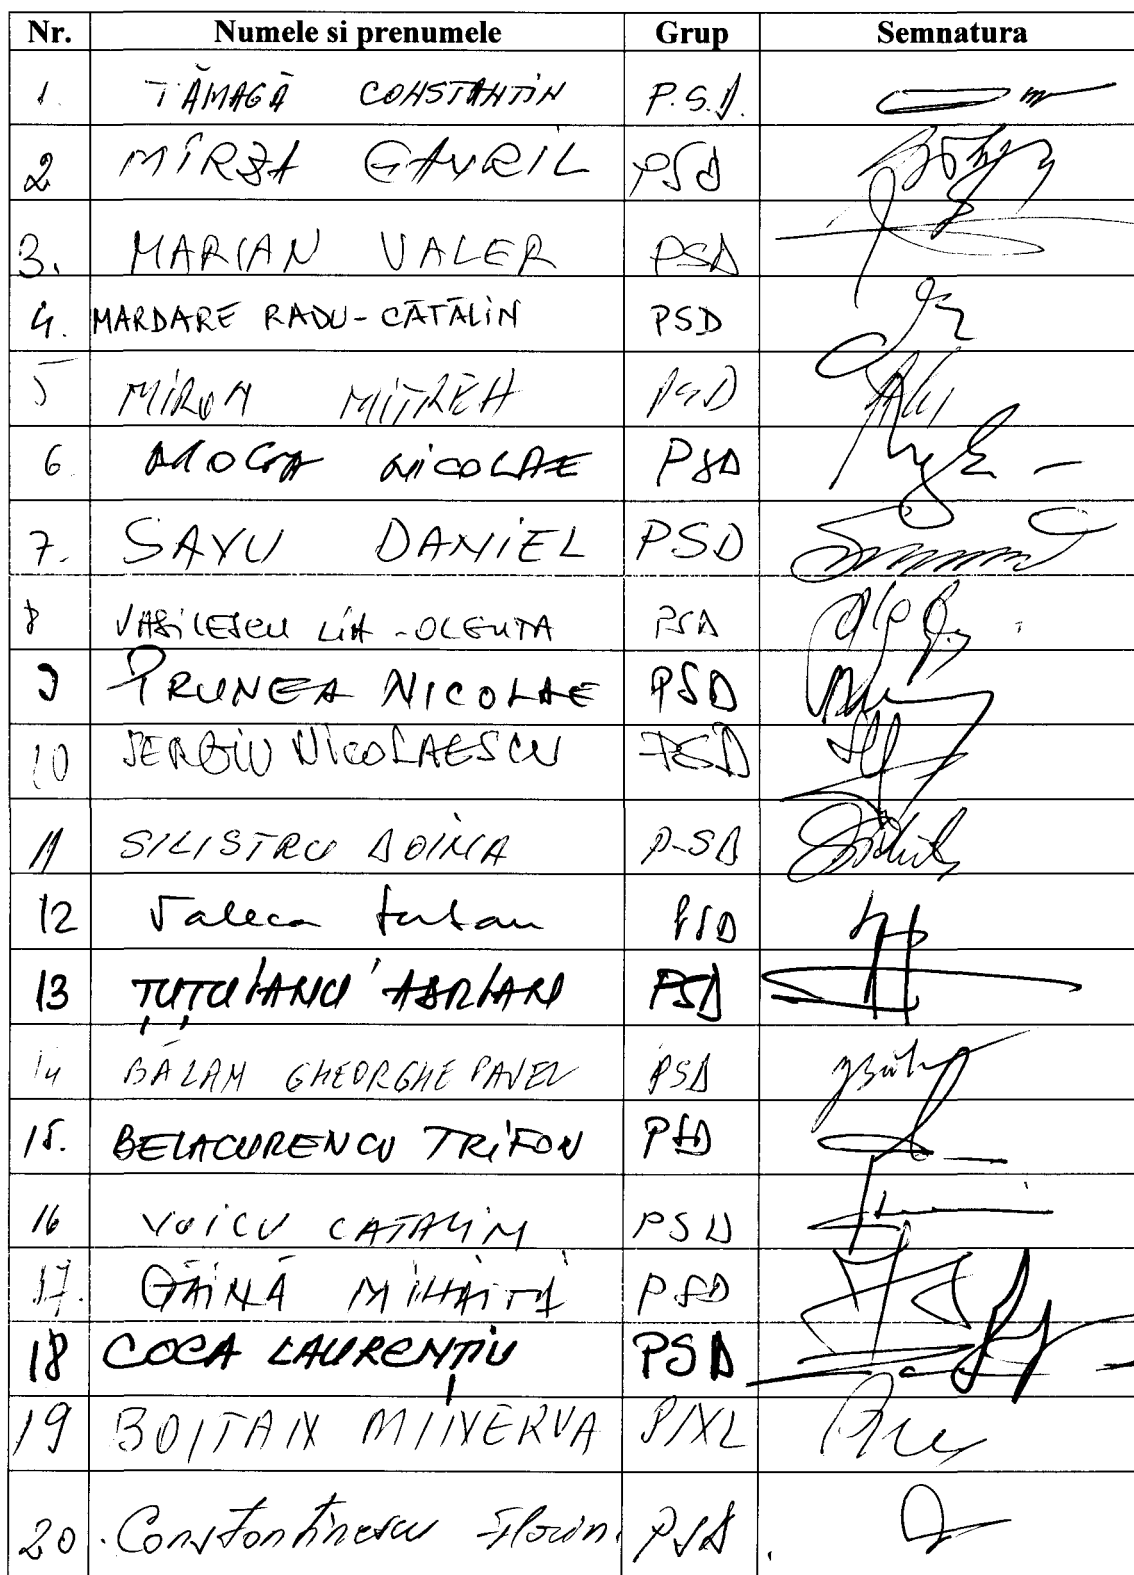 Nr. Numele si prenumele Grup Semnatura
1. TĂMAGĂ CONSTANTIN P.S.D.
2 MÎRZA GAVRIL PSD
3. MARIAN VALER PSD
4. MARDARE RADU-CĂTĂLIN PSD
5 MIRON MITREA PSD
6 MOGA NICOLAE PSD
7. SAVU DANIEL PSD
8 VASILESCU LIA-OLGUTA PSD
9 PRUNEA NICOLAE PSD
10 SERGIU NICOLAESCU PSD
11 SILISTRU DOINA PSD
12 Valeca Serban PSD
13 ȚUȚUIANU ADRIAN PSD
14 BĂLAN GHEORGHE PAVEL PSD
15. BELACURENCU TRIFON PSD
16 VOICU CATALIN PSD
17. GĂINĂ MIHĂIȚĂ PSD
18 COCA LAURENȚIU PSD
19 BOITAN MINERVA PNL
20. Constantinescu Florin. PSD.